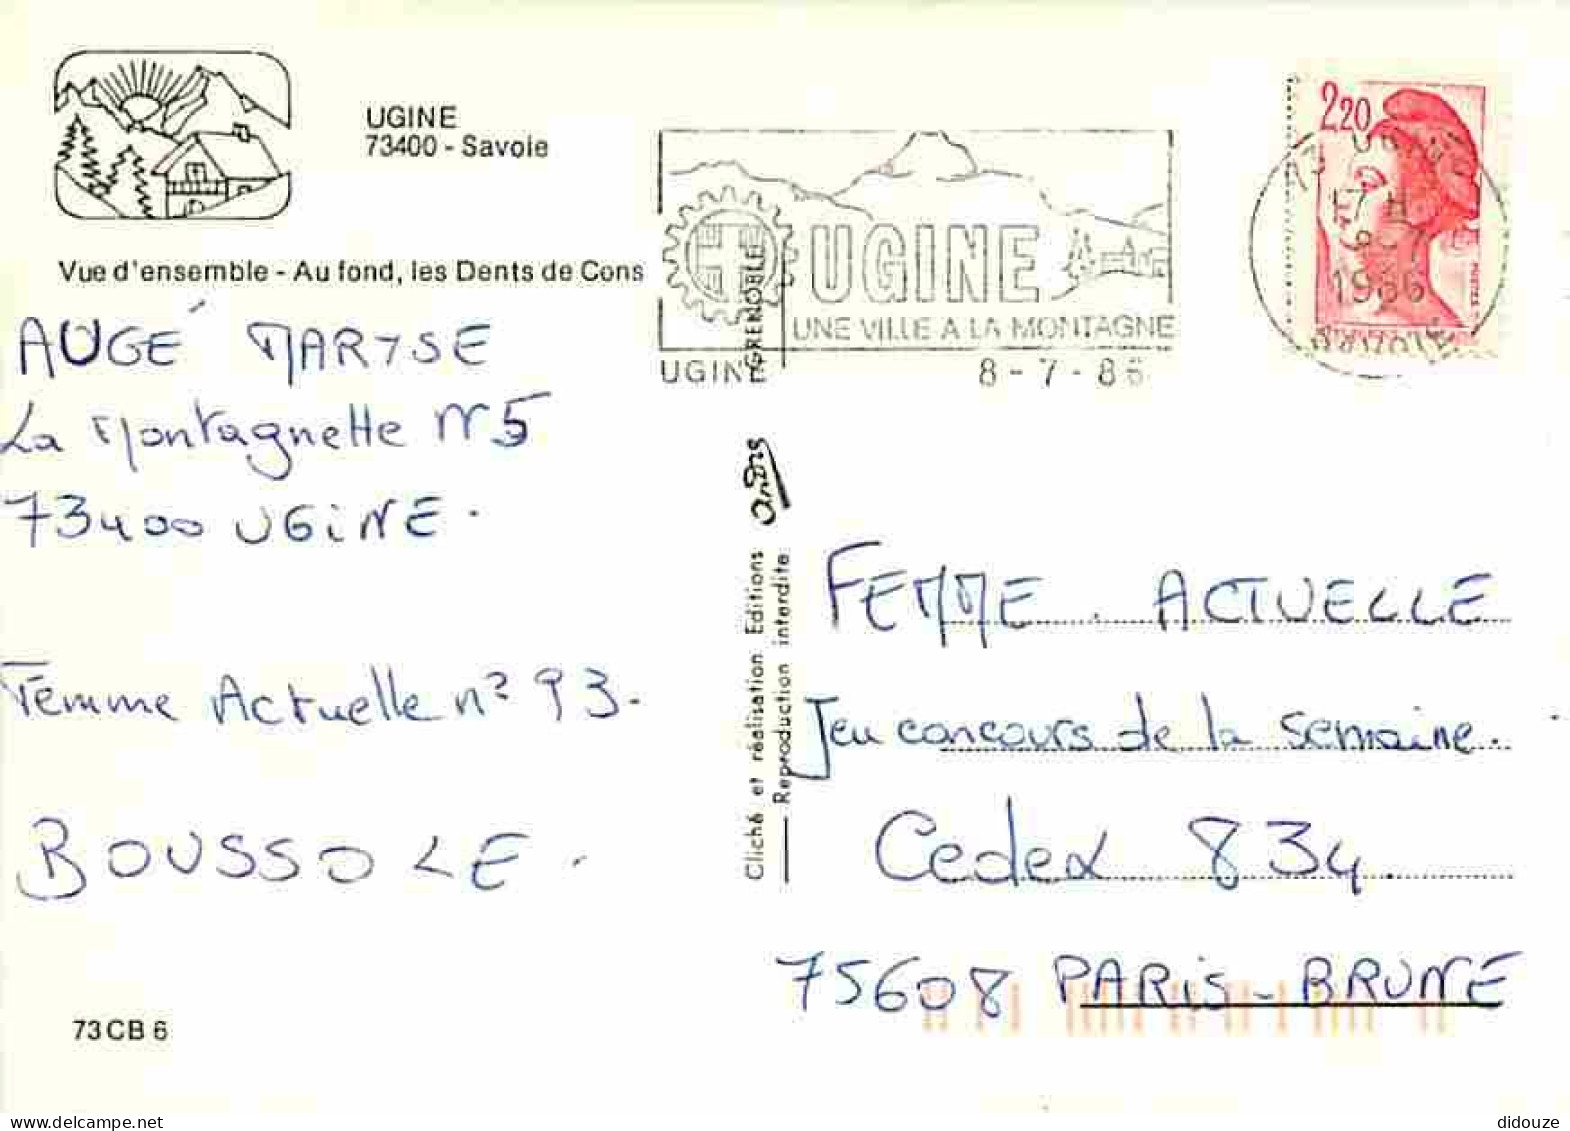 UGINE
73400 - Savoie
Vue d'ensemble - Au fond, les Dents de Cons
AUGÉ MARYSE
La Montagnette N5
73400 UGiNE.
Femme Actuelle n° 93.
BOUSSOLE.
73 CB 6
UGINE
UNE VILLE A LA MONTAGNE
UGINE 8-7-86
GRENOBLE
2,20
POSTES
17 H
8-7
1986
SAVOIE
Cliché et réalisation Editions André
Reproduction interdite
FEMME ACTUELLE
Jeu concours de la semaine.
Cedex 834.
75608 PARiS-BRUNE
didouze